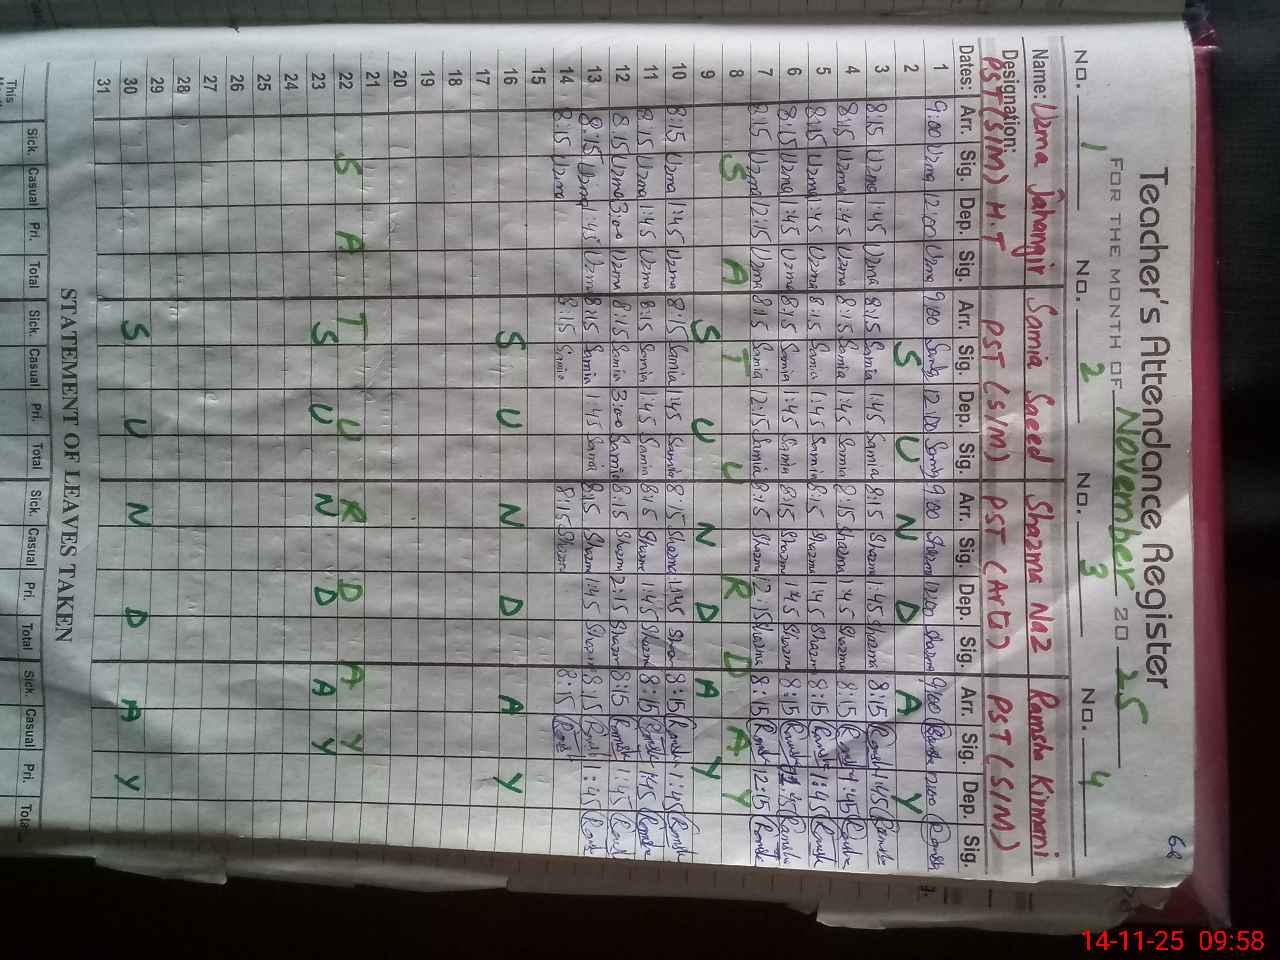 68
Teacher's Attendance Register
FOR THE MONTH OF November 20 25
No. 1 No. 2 No. 3 No. 4
Name: Uzma Jahangir Samia Saeed Shazma Naz Ramsha Kirmani
Designation: PST (S/M) H.T PST (S/M) PST (Arts) PST (S/M)
Dates: Arr. Sig. Dep. Sig. Arr. Sig. Dep. Sig. Arr. Sig. Dep. Sig. Arr. Sig. Dep. Sig.
1 9:00 Uzma 12:00 Uzma 9:00 12:00 9:00 Shazma 12:00 Shazma 9:00 Ramsha 12:00 Ramsha
2 S U N D A Y
3 8:15 Uzma 1:45 Uzma 8:15 Samia 1:45 Samia 8:15 Shazma 1:45 Shazma 8:15 Ramsha 1:45 Ramsha
4 8:15 Uzma 1:45 Uzma 8:15 Samia 1:45 Samia 8:15 Shazma 1:45 Shazma 8:15 Ramsha 1:45 Ramsha
5 8:15 Uzma 1:45 Uzma 8:15 Samia 1:45 Samia 8:15 Shazma 1:45 Shazma 8:15 Ramsha 1:45 Ramsha
6 8:15 Uzma 1:45 Uzma 8:15 Samia 1:45 Samia 8:15 Shazma 1:45 Shazma 8:15 Ramsha :45 Ramsha
7 8:15 Uzma 12:15 Uzma 8:15 Samia 12:15 Samia 8:15 Shazma 12:15 Shazma 8:15 Ramsha 12:15 Ramsha
8 S A T U R D A Y
9 S U N D A Y
10 8:15 Uzma 1:45 Uzma 8:15 Samia 1:45 Samia 8:15 Shazma 1:45 8:15 Ramsha 1:45 Ramsha
11 8:15 Uzma 1:45 Uzma 8:15 Samia 1:45 Samia 8:15 Shazma 1:45 Shazma 8:15 Ramsha 1:45 Ramsha
12 8:15 Uzma 3:00 Uzma 8:15 Samia 3:00 Samia 8:15 Shazma 2:15 Shazma 8:15 Ramsha 1:45 Ramsha
13 8:15 Uzma 1:45 Uzma 8:15 Samia 1:45 Samia 8:15 Shazma 1:45 Shazma 8:15 Ramsha 1:45 Ramsha
14 8:15 Uzma 8:15 Samia 8:15 Shazma 8:15
15
16 S U N D A Y
17
18
19
20
21
22 S A T U R D A Y
23 S U N D A Y
24
25
26
27
28
29
30 S U N D A Y
31
STATEMENT OF LEAVES TAKEN
Sick. Casual Pri. Total Sick. Casual Pri. Total Sick. Casual Pri. Total Sick. Casual Pri.
This
14-11-25 09:58